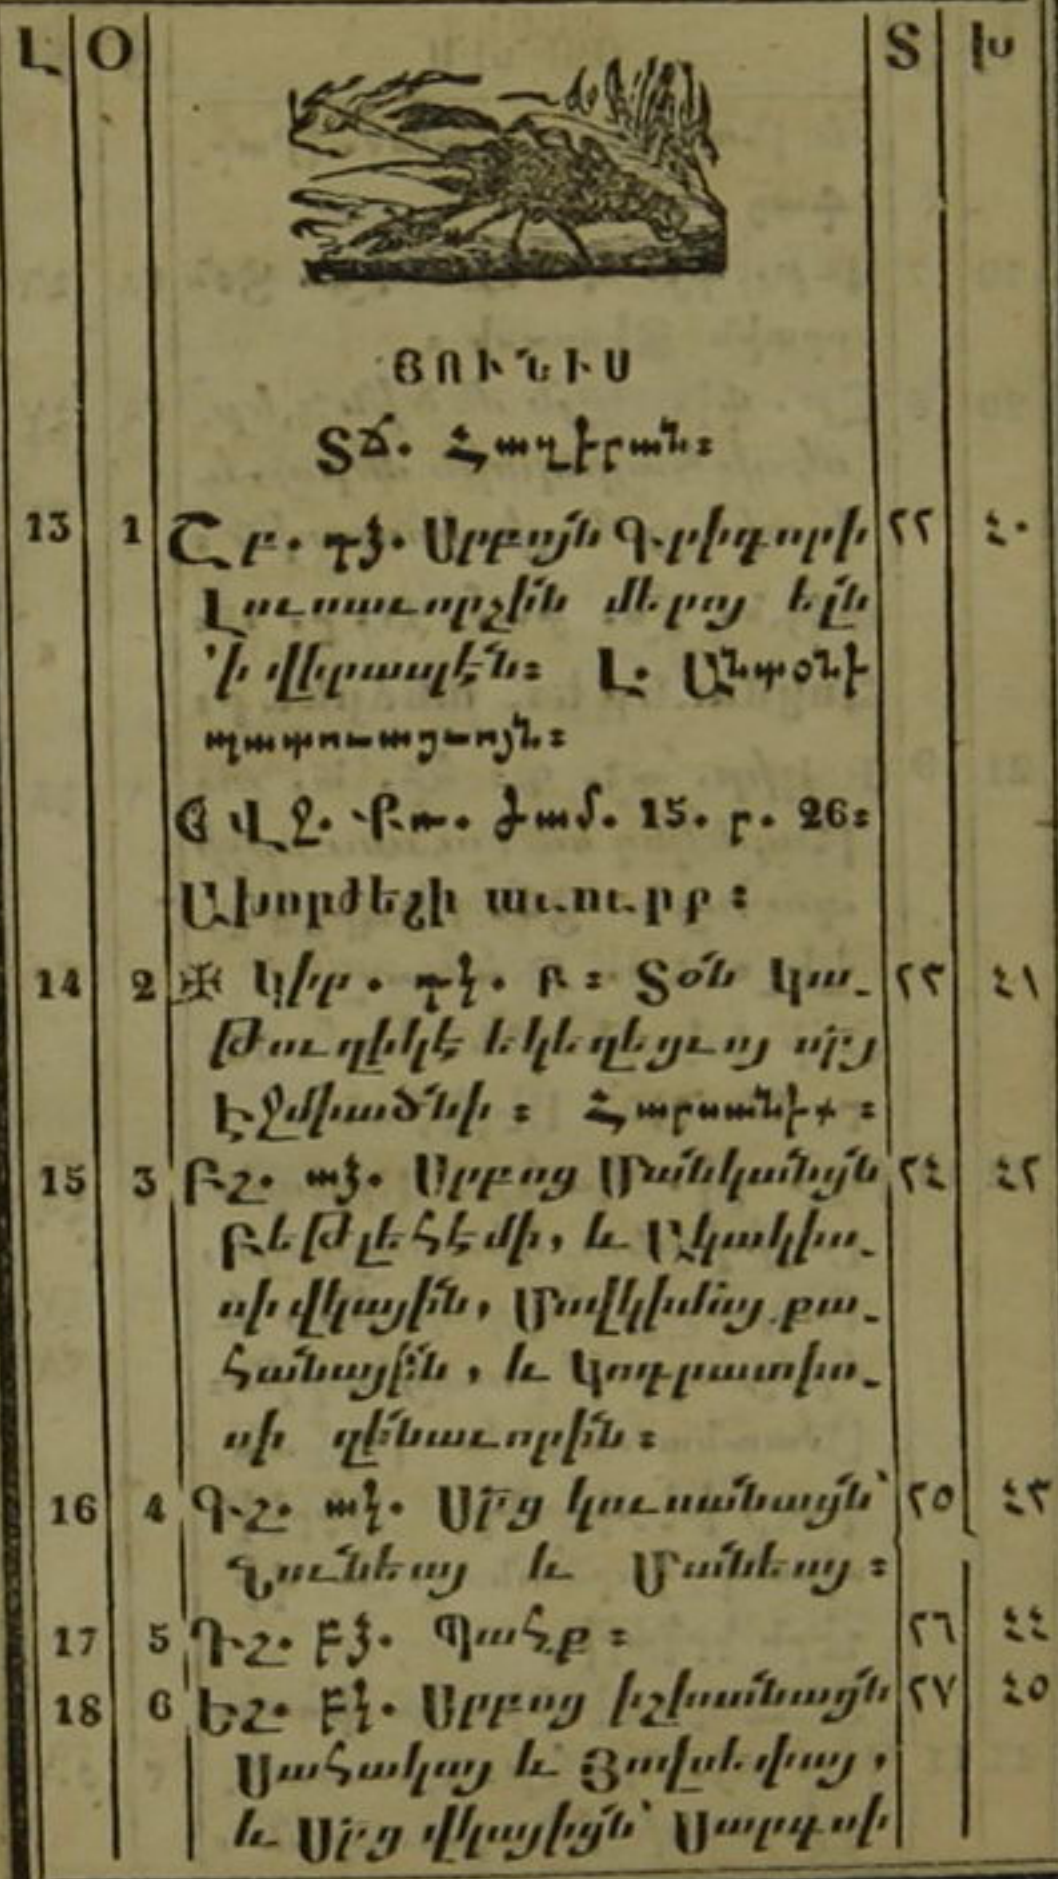 Լ Օ Տ Խ
ՅՈՒՆԻՍ
ՏՃ. Հաղէրան։
13 1 Շբ. դձ. Սրբոյն Գրիգորի ٢٢ ٤٠
Լուսաւորչին մերոյ ելն
՚ի վիրապէն։ Լ. Անտօնի
պատուացւոյն։
15. ր. 26։
Ախորժելի աւուրբ։
14 2 ✠ Կիր. դկ. Բ։ Տօն Կա֊ ٢٣ ٤١
թուղիկէ եկեղեցւոյ սրց
Էջմիածնի։ Հարսանիք։
15 3 Բշ. աձ. Սրբոց Մանկանցն ٢٤ ٤٢
Բեթլեհէմի, և Ակակիո֊
սի վկային, Մովկիմայ քա֊
հանային, և Կոդրատիո֊
սի զինաւորին։
16 4 Գշ. ակ. Սրց կուսանացն՝ ٢٥ ٤٣
Նունեայ և Մանեայ։
17 5 Դշ. բձ. Պահք։ ٢٦ ٤٤
18 6 Եշ. բկ. Սրբոց իշխանացն ٢٧ ٤٥
Սահակայ և Յովսեփայ,
և Սրց վկայիցն՝ Սարգսի